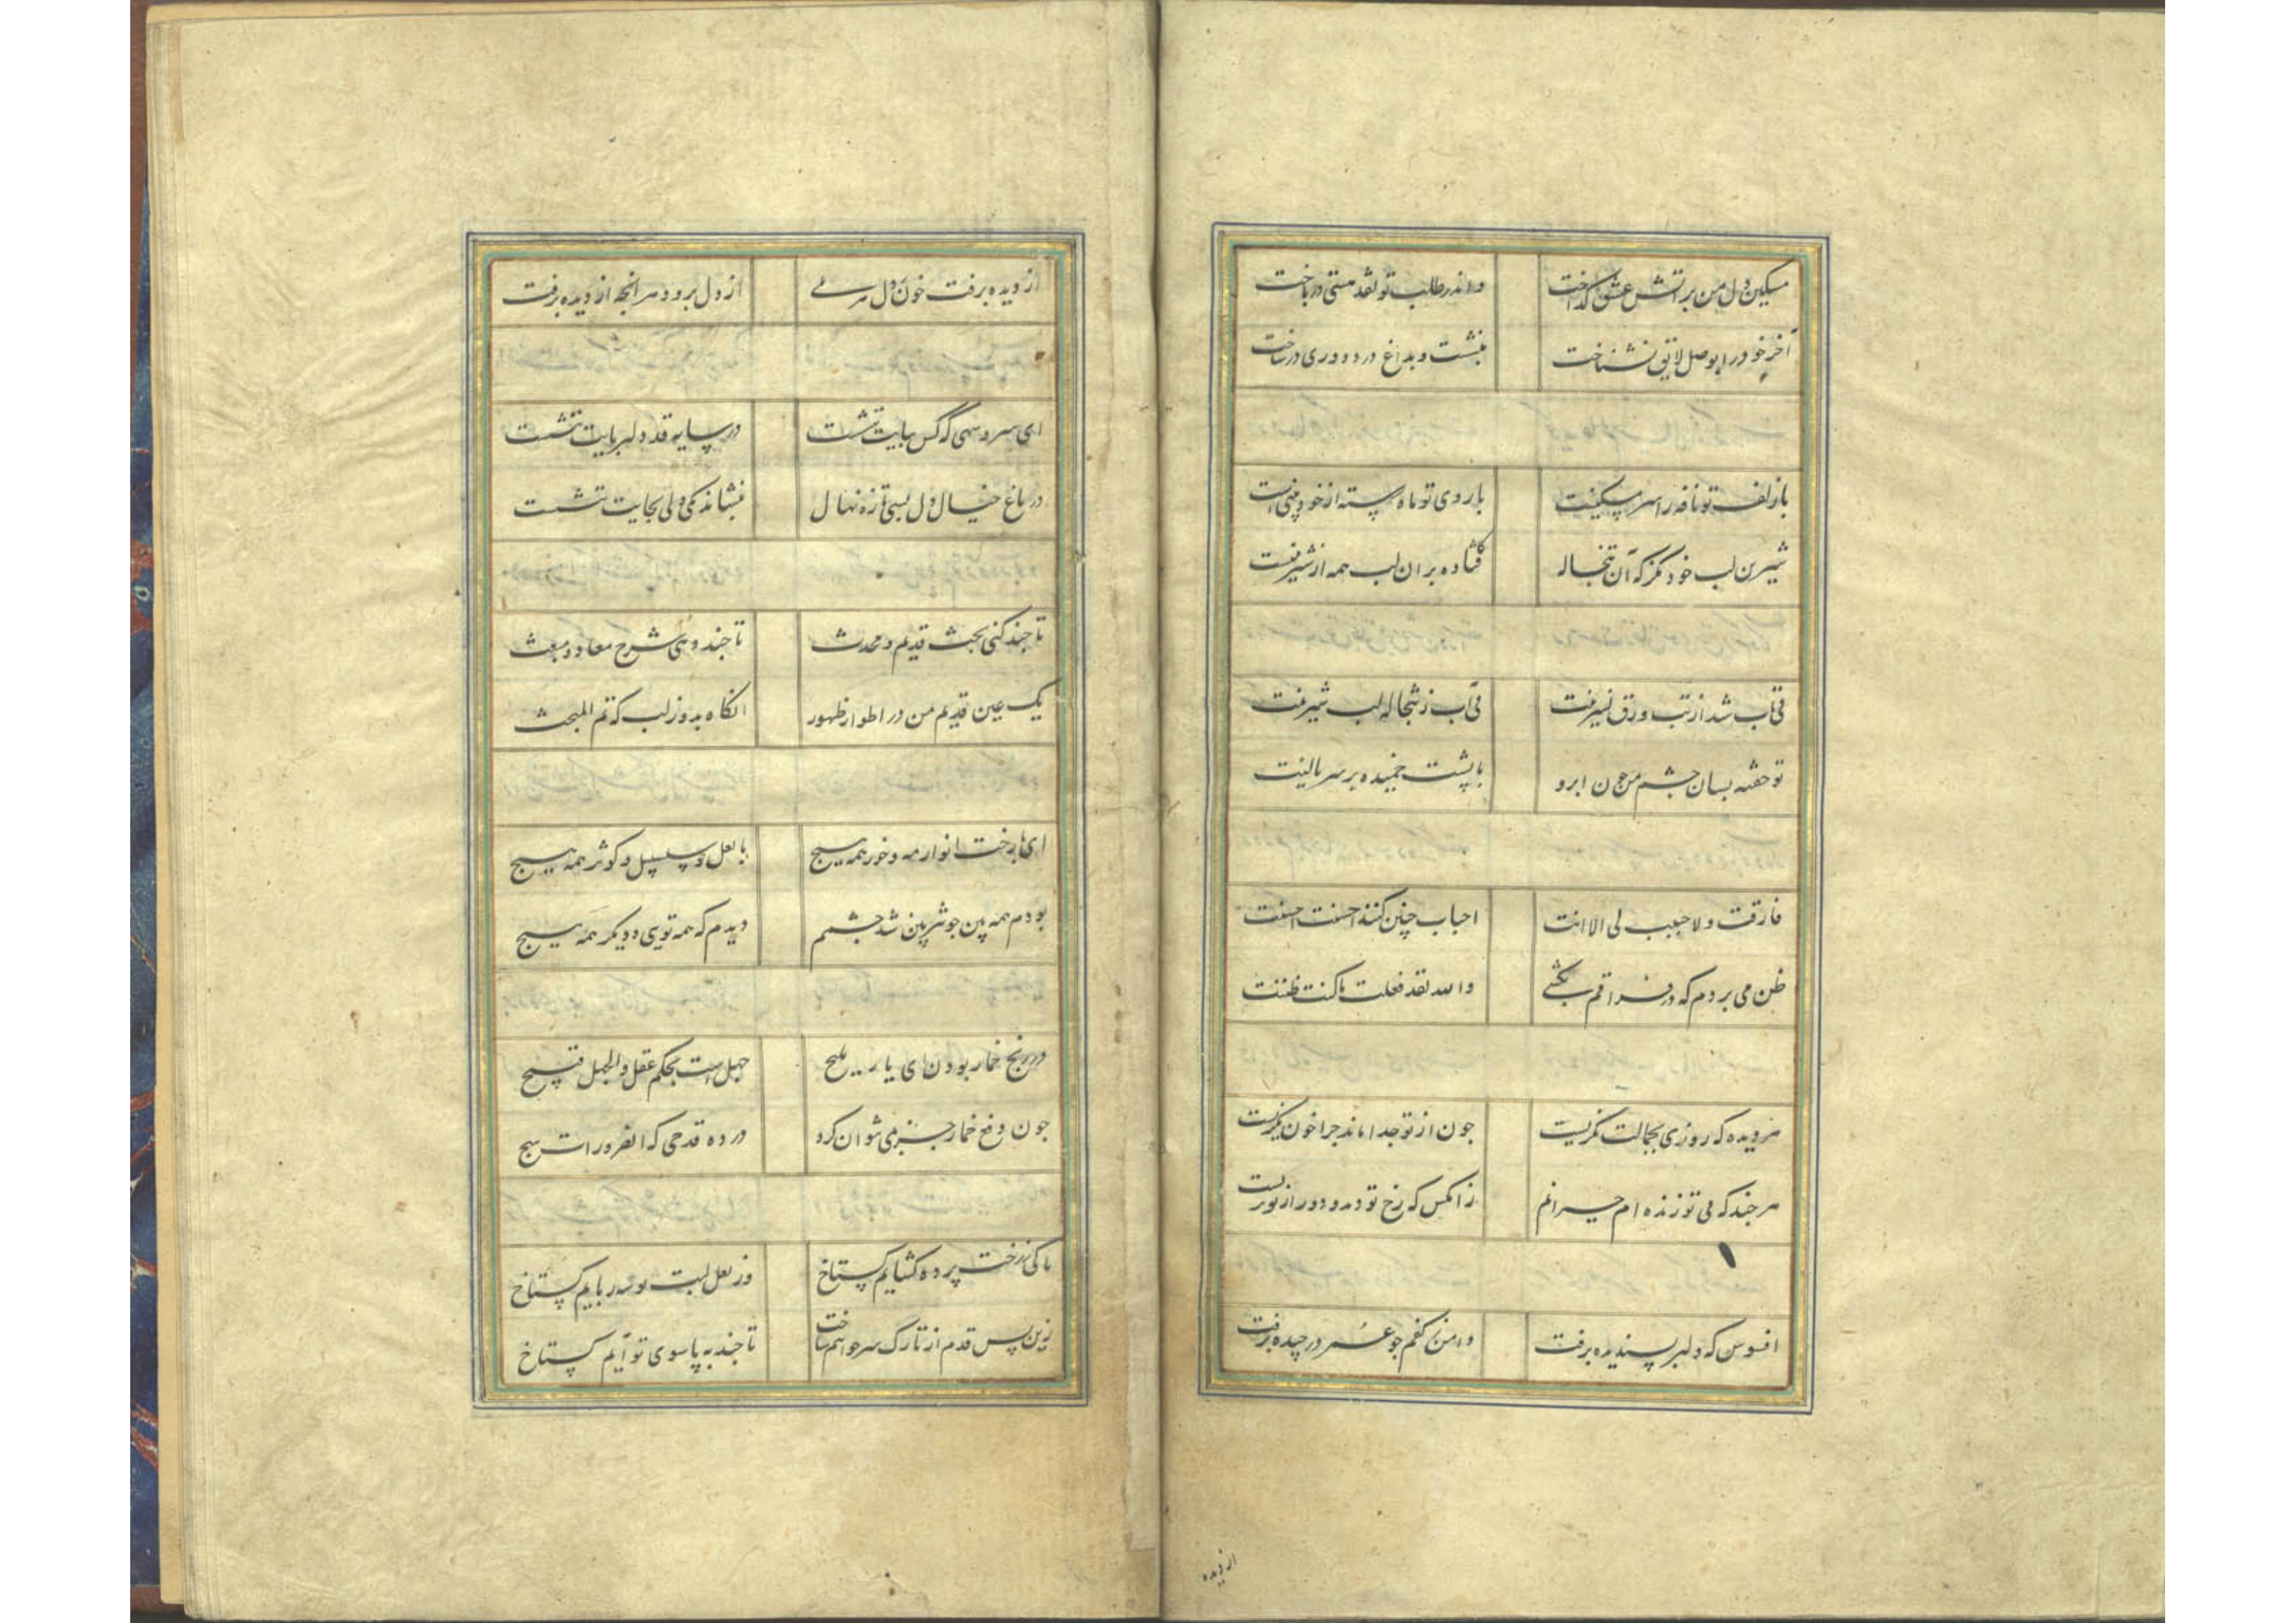 مسکین دل من بر آتش عشق گداخت
واندر طلب تو نقد هستی درباخت
آخر خود را بوصل لایق نشناخت
بنشست و بداغ درد دوری درساخت
با زلف تو نافه را سر مسکینیست
با روی تو ماه رسته از خودبینیست
شیرین لب خود مگز که آن تبخاله
افتاده بران لب همه از شیرینیست
بی آب شد از تب ورق نسرینت
بی آب ز تبخاله لب شیرینت
تو خفته بسان چشم من چون ابرو
با پشت خمیده بر سر بالینت
فارقت ولا حبیب لی الا انت
احباب چنین کنند احسنت احسنت
ظن می بردم که در فراقم بکشی
والله لقد فعلت ما کنت ظننت
هر دیده که روزی بجمالت نگریست
چون از تو جدا ماند چرا خون نگریست
هر چند که بی تو زنده ام حیرانم
زانکس که رخ تو دید و دور از تو بزیست
افسوس که دلبر پسندیده برفت
دامن ز کفم چو عمر در چیده برفت
از دیده
از دیده برفت خون ز دل هم بی
از دل برود هر انچه از دیده برفت
ای سرو سهی که کس بپایت ننشست
در سایه قد دلربایت ننشست
در باغ خیال دل بسی تازه نهال
بنشاند یکی ولی بجایت ننشست
تا چند کنی بحث قدیم و محدث
تا چند دهی شرح معاد و مبعث
یک عین قدیم من در اطوار ظهور
انکاه بدوز لب که تم المبحث
ای با رخت انوار مه و خور همه هیچ
با لعل تو سلسبیل و کوثر همه هیچ
بودم همه بین چو تیزبین شد چشمم
دیدم که همه تویی و دیگر همه هیچ
در رنج خمار بودن ای یار ملیح
جهل است بحکم عقل والجهل قبیح
چون دفع خمار جز بمی نتوان کرد
در ده قدحی که الضرورات تبیح
ما کی ز رخت پرده کشاییم گستاخ
وز لعل لبت بوسه رباییم گستاخ
زین پس قدم از تارک سر خواهم ساخت
تا چند به پا سوی تو آییم گستاخ